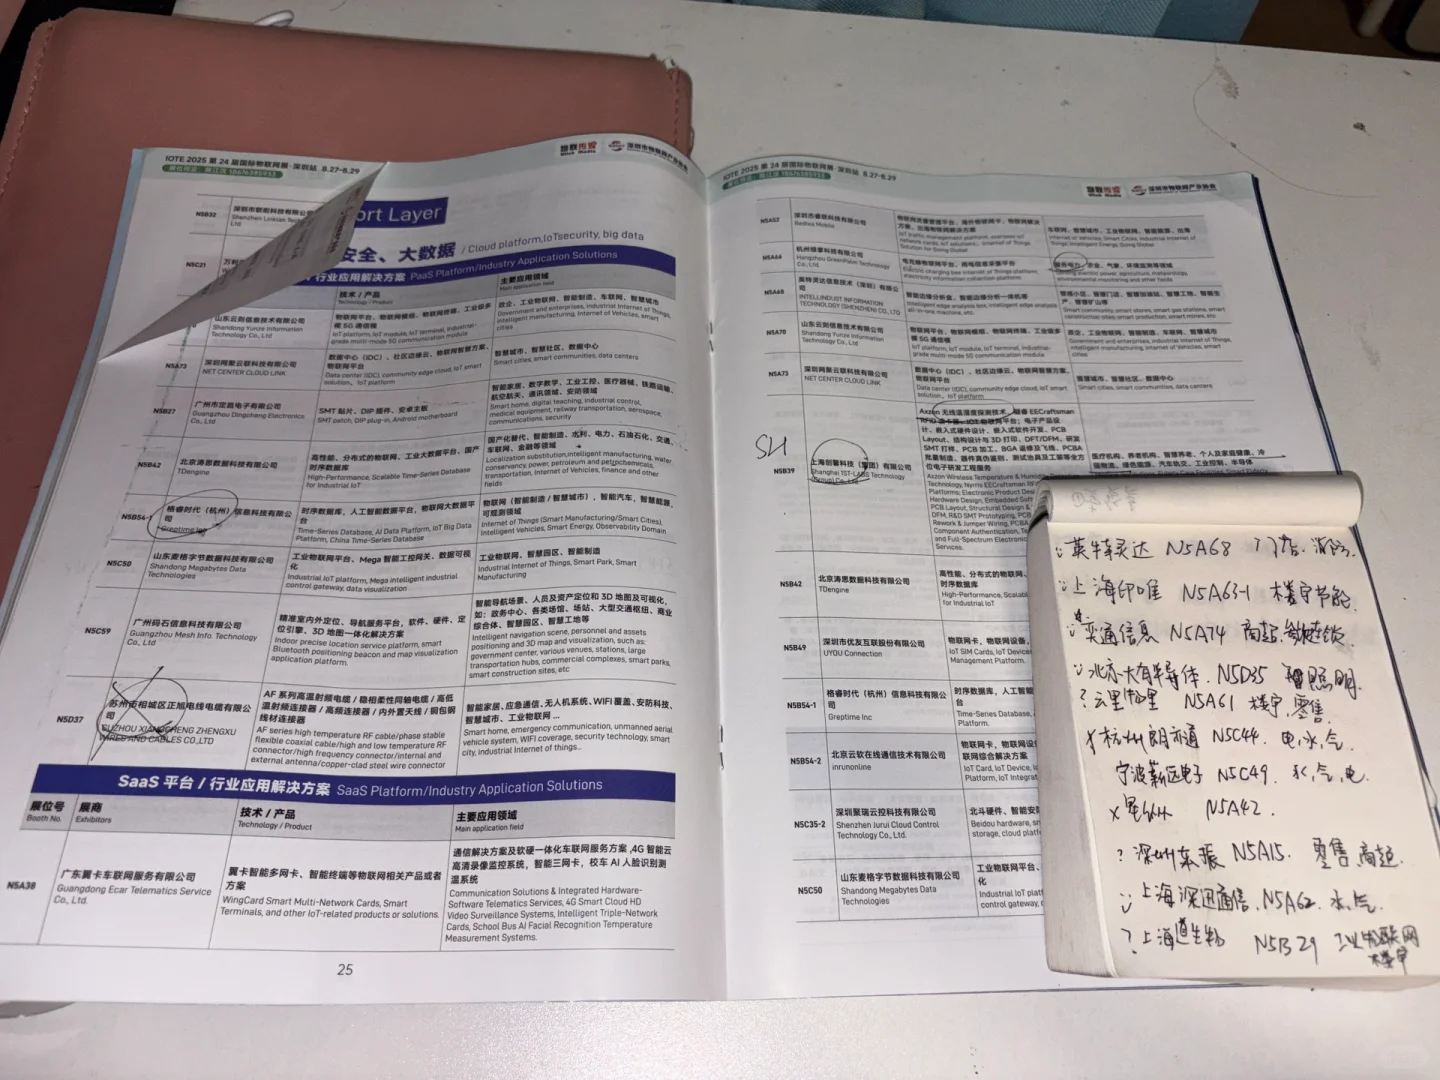 IOTE 2025 第 24 届国际物联网展·深圳站 8.27-8.29
展位预定：陈江汉 18676385933
物联传媒
Ulink Media
深圳市物联网产业协会
ort Layer
安全、大数据 / Cloud platform,IoTsecurity, big data
行业应用解决方案 PaaS Platform/Industry Application Solutions
N5B32
深圳市联昕科技有限公
Shenzhen Linkian Tech
Ltd
N5C21
技术 / 产品
Technology / Product
主要应用领域
Main application field
山东云则信息技术有限公司
Shandong Yunze Information
Technology Co., Ltd
物联网平台、物联网模组、物联网终端、工业级多
模 5G 通信模
IoT platform, IoT module, IoT terminal, industrial-
grade multi-mode 5G communication module
政企、工业物联网、智能制造、车联网、智慧城市
Government and enterprises, Industrial Internet of Things,
intelligent manufacturing, Internet of Vehicles, smart
cities
N5A73
深圳网聚云联科技有限公司
NET CENTER CLOUD LINK
数据中心（IDC）、社区边缘云、物联网智慧方案、
物联网平台
Data center (IDC), community edge cloud, IoT smart
solution、IoT platform
智慧城市、智慧社区、数据中心
Smart cities, smart communities, data centers
N5B27
广州市定昌电子有限公司
Guangzhou Dingchang Electronics
Co., Ltd
SMT 贴片、DIP 插件、安卓主板
SMT patch, DIP plug-in, Android motherboard
智能家居、数字教学、工业工控、医疗器械、铁路运输、
航空航天、通讯领域、安防领域
Smart home, digital teaching, industrial control,
medical equipment, railway transportation, aerospace,
communications, security
N5B42
北京涛思数据科技有限公司
TDengine
高性能、分布式的物联网、工业大数据平台、国产
时序数据库
High-Performance, Scalable Time-Series Database
for Industrial IoT
国产化替代、智能制造、水利、电力、石油石化、交通、
车联网、金融等领域
Localization substitution,intelligent manufacturing, water
conservancy, power, petroleum and petrochemicals,
transportation, Internet of Vehicles, finance and other
fields
N5B54-1
格睿时代（杭州）信息科技有限公
司
Greptime Inc
时序数据库、人工智能数据平台、物联网大数据平
台
Time-Series Database, AI Data Platform, IoT Big Data
Platform, China Time-Series Database
物联网（智能制造 / 智慧城市）、智能汽车、智慧能源、
可观测领域
Internet of Things (Smart Manufacturing/Smart Cities),
Intelligent Vehicles, Smart Energy, Observability Domain
N5C50
山东麦格字节数据科技有限公司
Shandong Megabytes Data
Technologies
工业物联网平台、Mega 智能工控网关、数据可视
化
Industrial IoT platform, Mega intelligent industrial
control gateway, data visualization
工业物联网、智慧园区、智能制造
Industrial Internet of Things, Smart Park, Smart
Manufacturing
N5C59
广州码石信息科技有限公司
Guangzhou Mesh Info. Technology
Co., Ltd
精准室内外定位、导航服务平台，软件、硬件、定
位引擎、3D 地图一体化解决方案
Indoor precise location service platform, smart
Bluetooth positioning beacon and map visualization
application platform.
智能导航场景、人员及资产定位和 3D 地图及可视化，
如：政务中心、各类场馆、场站、大型交通枢纽、商业
综合体、智慧园区、智慧工地等
Intelligent navigation scene, personnel and assets
positioning and 3D map and visualization, such as:
government center, various venues, stations, large
transportation hubs, commercial complexes, smart parks,
smart construction sites, etc
N5D37
苏州市相城区正旭电线电缆有限公
司
SUZHOU XIANGCHENG ZHENGXU
WIRES AND CABLES CO.,LTD
AF 系列高温射频电缆 / 稳相柔性同轴电缆 / 高低
温射频连接器 / 高频连接器 / 内外置天线 / 铜包钢
线材连接器
AF series high temperature RF cable/phase stable
flexible coaxial cable/high and low temperature RF
connector/high frequency connector/internal and
external antenna/copper-clad steel wire connector
智能家居、应急通信、无人机系统、WIFI 覆盖、安防科技、
智慧城市、工业物联网 ...
Smart home, emergency communication, unmanned aerial
vehicle system, WIFI coverage, security technology, smart
city, Industrial Internet of things...
SaaS 平台 / 行业应用解决方案 SaaS Platform/Industry Application Solutions
展位号
Booth No.
展商
Exhibitors
技术 / 产品
Technology / Product
主要应用领域
Main application field
N5A38
广东翼卡车联网服务有限公司
Guangdong Ecar Telematics Service
Co., Ltd.
翼卡智能多网卡、智能终端等物联网相关产品或者
方案
WingCard Smart Multi-Network Cards, Smart
Terminals, and other IoT-related products or solutions.
通信解决方案及软硬一体化车联网服务方案 ,4G 智能云
高清录像监控系统，智能三网卡，校车 AI 人脸识别测
温系统
Communication Solutions & Integrated Hardware-
Software Telematics Services, 4G Smart Cloud HD
Video Surveillance Systems, Intelligent Triple-Network
Cards, School Bus AI Facial Recognition Temperature
Measurement Systems.
25
IOTE 2025 第 24 届国际物联网展·深圳站 8.27-8.29
展位预定：陈江汉 18676385933
物联传媒
Ulink Media
深圳市物联网产业协会
N5A52
深圳杰睿联科技有限公司
Redtea Mobile
物联网流量管理平台、海外物联网卡、物联网解决
方案、出海物联网解决方案
车联网、智慧城市、工业物联网、智能能源、出海
N5A66
杭州绿掌科技有限公司
Hangzhou GreenPalm Technology
Co., Ltd
电充桩物联网平台、用电信息采集平台
Electric charging bee Internet of Things platform,
electricity information collection platform
N5A68
英特灵达信息技术（深圳）有限公司
INTELLINDUST INFORMATION
TECHNOLOGY (SHENZHEN) CO., LTD
智能边缘分析盒、智能边缘分析一体机等
Intelligent edge analysis box, intelligent edge analysis
all-in-one machine, etc.
N5A70
山东云则信息技术有限公司
Shandong Yunze Information
Technology Co., Ltd
物联网平台、物联网模组、物联网终端、工业级多
模 5G 通信模
IoT platform, IoT module, IoT terminal, industrial-
grade multi-mode 5G communication module
政企、工业物联网、智能制造、车联网、智慧城市
Government and enterprises, Industrial Internet of Things,
intelligent manufacturing, Internet of Vehicles, smart
cities
N5A73
深圳网聚云联科技有限公司
NET CENTER CLOUD LINK
数据中心（IDC）、社区边缘云、物联网智慧方案、
物联网平台
Data center (IDC), community edge cloud, IoT smart
solution、IoT platform
智慧城市、智慧社区、数据中心
Smart cities, smart communities, data centers
SH
N5B39
上海创馨科技（集团）有限公司
Shanghai TST-LABS Technology
(Group) Co., Ltd
Axzon 无线温湿度探测技术
计、嵌入式硬件设计、嵌入式软件开发、PCB
Layout、结构设计与 3D 打印、DFT/DFM、研发
SMT 打样、PCB 加工、BGA 返修及飞线、PCBA
批量制造、器件真伪鉴别、测试治具及工装等全方
位电子研发工程服务
医疗机构、养老机构、智慧养老、个人及家庭健康、冷
链物流、绿色能源、汽车轨交、工业控制、半导体
N5B42
北京涛思数据科技有限公司
TDengine
高性能、分布式的物联网、
时序数据库
High-Performance, Scalable
for Industrial IoT
N5B49
深圳市优友互联股份有限公司
UYOU Connection
物联网卡、物联网设备、
IoT SIM Cards, IoT Devices
Management Platform.
N5B54-1
格睿时代（杭州）信息科技有限公
司
Greptime Inc
时序数据库、人工智能
Time-Series Database,
Platform.
N5B54-2
北京云软在线通信技术有限公司
inrunonline
物联网卡、物联网设
联网综合解决方案
IoT Card, IoT Device,
Platform, IoT Integrat
N5C35-2
深圳聚瑞云控科技有限公司
Shenzhen Jurui Cloud Control
Technology Co., Ltd.
北斗硬件、智能安
Beidou hardware, sm
storage, cloud platf
N5C50
山东麦格字节数据科技有限公司
Shandong Megabytes Data
Technologies
工业物联网平台、
化
Industrial IoT platf
control gateway,
英特灵达 N5A68 门店、消防
上海印唯 N5A63-1 楼宇节能
奕通信息 N5A74 商超、餐饮连锁
北京大有半导体 N5D35 智慧照明
? 云里物里 N5A61 楼宇、零售
x 杭州朗亦通 N5C44 电、水、气
宁波新远电子 N5C49 水、气、电
x 星纵 N5A42
? 深圳东振 N5A15 零售 商超
上海深迅通信 N5A62 水、气
? 上海道生物 N5B29 工业物联网
楼宇